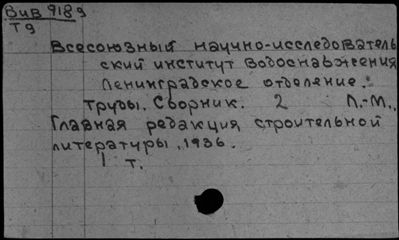 ВиВ 9189
Т9
Всесоюзный научно-исследователь
ский институт Водоснабжения
Ленинградское отделение.
Труды. Сборник. 2 Л.-М.,
Главная редакция строительной
литературы, 1936.
1 т.